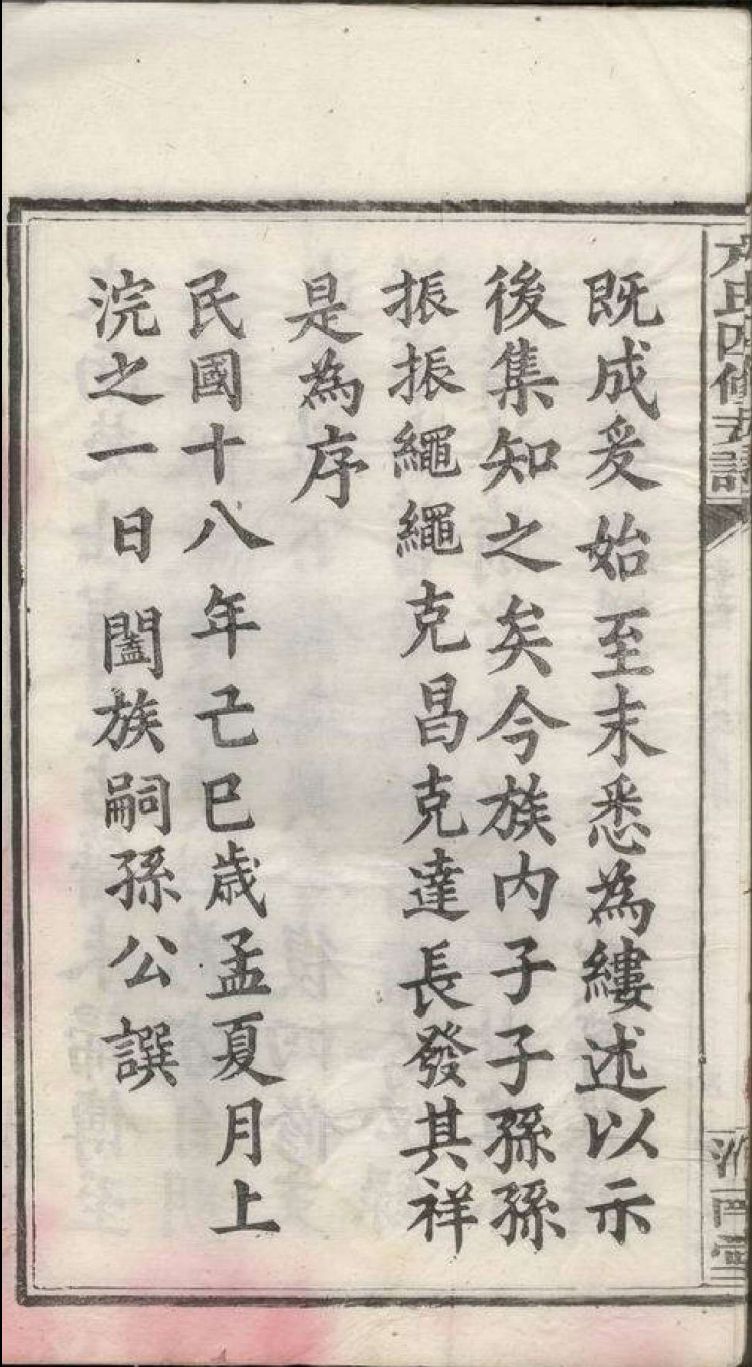 氏四修
既成爰始至末悉為縷述以示
後集知之矣今族內子子孫孫
振振繩繩克昌克達長發其祥
是為序
民國十八年己巳歲孟夏月上
浣之一日闔族嗣孫公譔